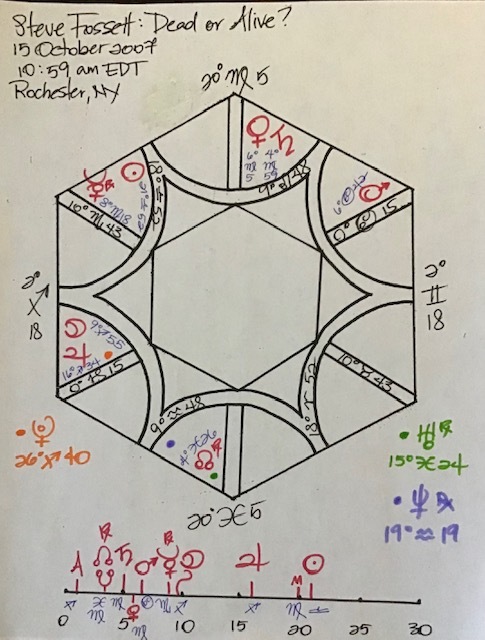 Steve Fossett: Dead or Alive?
15 October 2007
10:59 am EDT
Rochester, NY
20° ♍ 5
♀ ♄
6° ♍ 5
4° ♍ 59
9° ♌ 48
18° ♎ 52
☉
21° ♎ 52
☿ ℞
8° ♏ 18
10° ♏ 43
♂
0° ♋ 15
2° ♐ 18
2° ♊ 18
☽ 9° ♐ 55
♃
16° ♐ 34
0° ♑ 15
10° ♉ 43
18° ♈ 52
9° ♒ 48
☊ ℞
20° ♓ 5
26° ♐ 40
♅ ℞
15° ♓ 24
♆ ℞
19° ♒ 19
0 5 10 15 20 25 30